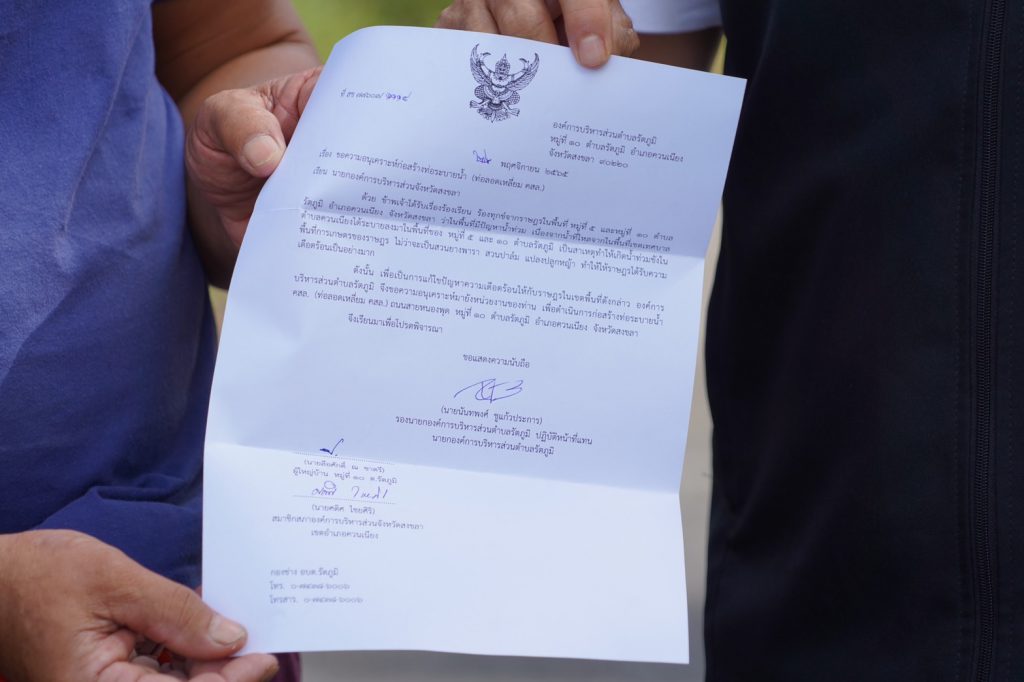 ที่ สข ๗๕๖๐๗/
องค์การบริหารส่วนตำบลรัตภูมิ
หมู่ที่ ๑๐ ตำบลรัตภูมิ อำเภอควนเนียง
จังหวัดสงขลา ๙๐๒๒๐
พฤศจิกายน ๒๕๖๕
เรื่อง ขอความอนุเคราะห์ก่อสร้างท่อระบายน้ำ (ท่อลอดเหลี่ยม คสล.)
เรียน นายกองค์การบริหารส่วนจังหวัดสงขลา
ด้วย ข้าพเจ้าได้รับเรื่องร้องเรียน ร้องทุกข์จากราษฎรในพื้นที่ หมู่ที่ ๕ และหมู่ที่ ๑๐ ตำบล
รัตภูมิ อำเภอควนเนียง จังหวัดสงขลา ว่าในพื้นที่มีปัญหาน้ำท่วม เนื่องจากน้ำที่ไหลจากในพื้นที่เขตเทศบาล
ตำบลควนเนียงได้ระบายลงมาในพื้นที่ของ หมู่ที่ ๕ และ ๑๐ ตำบลรัตภูมิ เป็นสาเหตุทำให้เกิดน้ำท่วมขังใน
พื้นที่การเกษตรของราษฎร ไม่ว่าจะเป็นสวนยางพารา สวนปาล์ม แปลงปลูกหญ้า ทำให้ให้ราษฎรได้รับความ
เดือดร้อนเป็นอย่างมาก
ดังนั้น เพื่อเป็นการแก้ไขปัญหาความเดือดร้อนให้กับราษฎรในเขตพื้นที่ดังกล่าว องค์การ
บริหารส่วนตำบลรัตภูมิ จึงขอความอนุเคราะห์มายังหน่วยงานของท่าน เพื่อดำเนินการก่อสร้างท่อระบายน้ำ
คสล. (ท่อลอดเหลี่ยม คสล.) ถนนสายหนองพุด หมู่ที่ ๑๐ ตำบลรัตภูมิ อำเภอควนเนียง จังหวัดสงขลา
จึงเรียนมาเพื่อโปรดพิจารณา
ขอแสดงความนับถือ
(นายนันทพงศ์ ชูแก้วประการ)
รองนายกองค์การบริหารส่วนตำบลรัตภูมิ ปฏิบัติหน้าที่แทน
นายกองค์การบริหารส่วนตำบลรัตภูมิ
(นายลือศักดิ์ ณ ชาตรี)
ผู้ใหญ่บ้าน หมู่ที่ ๑๐ ต.รัตภูมิ
(นายศดิศ ไชยศิริ)
สมาชิกสภาองค์การบริหารส่วนจังหวัดสงขลา
เขตอำเภอควนเนียง
กองช่าง อบต.รัตภูมิ
โทร.
โทรสาร.